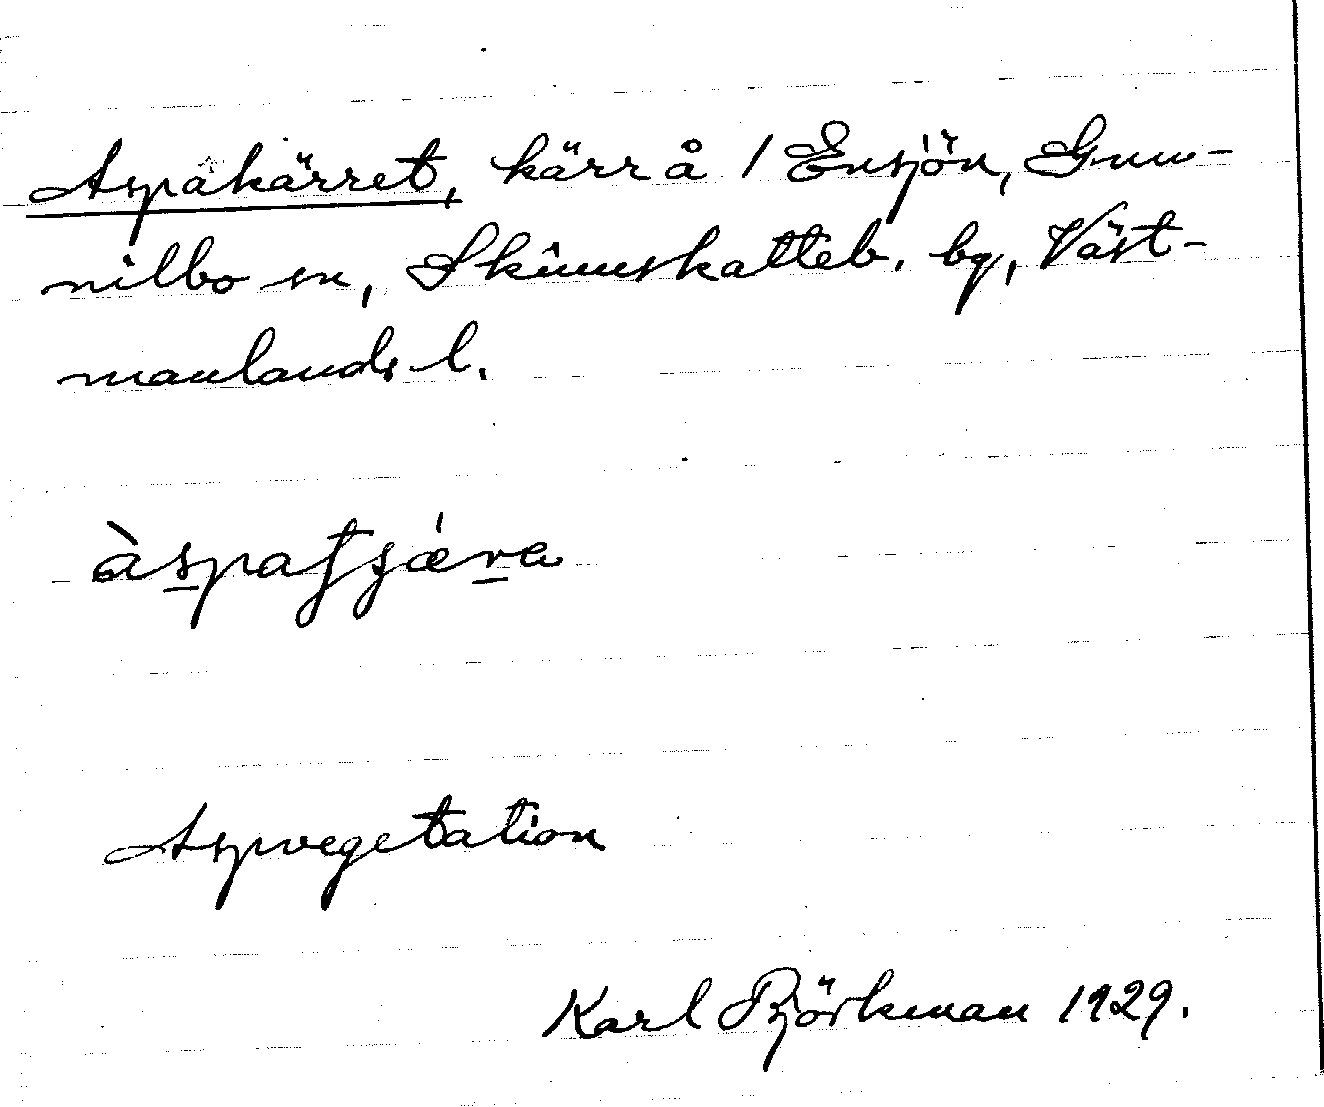 Aspakärret, kärr å / Ensjön, Gun-
nilbo sn, Skinnskatteb. bg, Väst-
manlands l.
àspatʃǽra
Aspvegetation
Karl Björkman 1929.